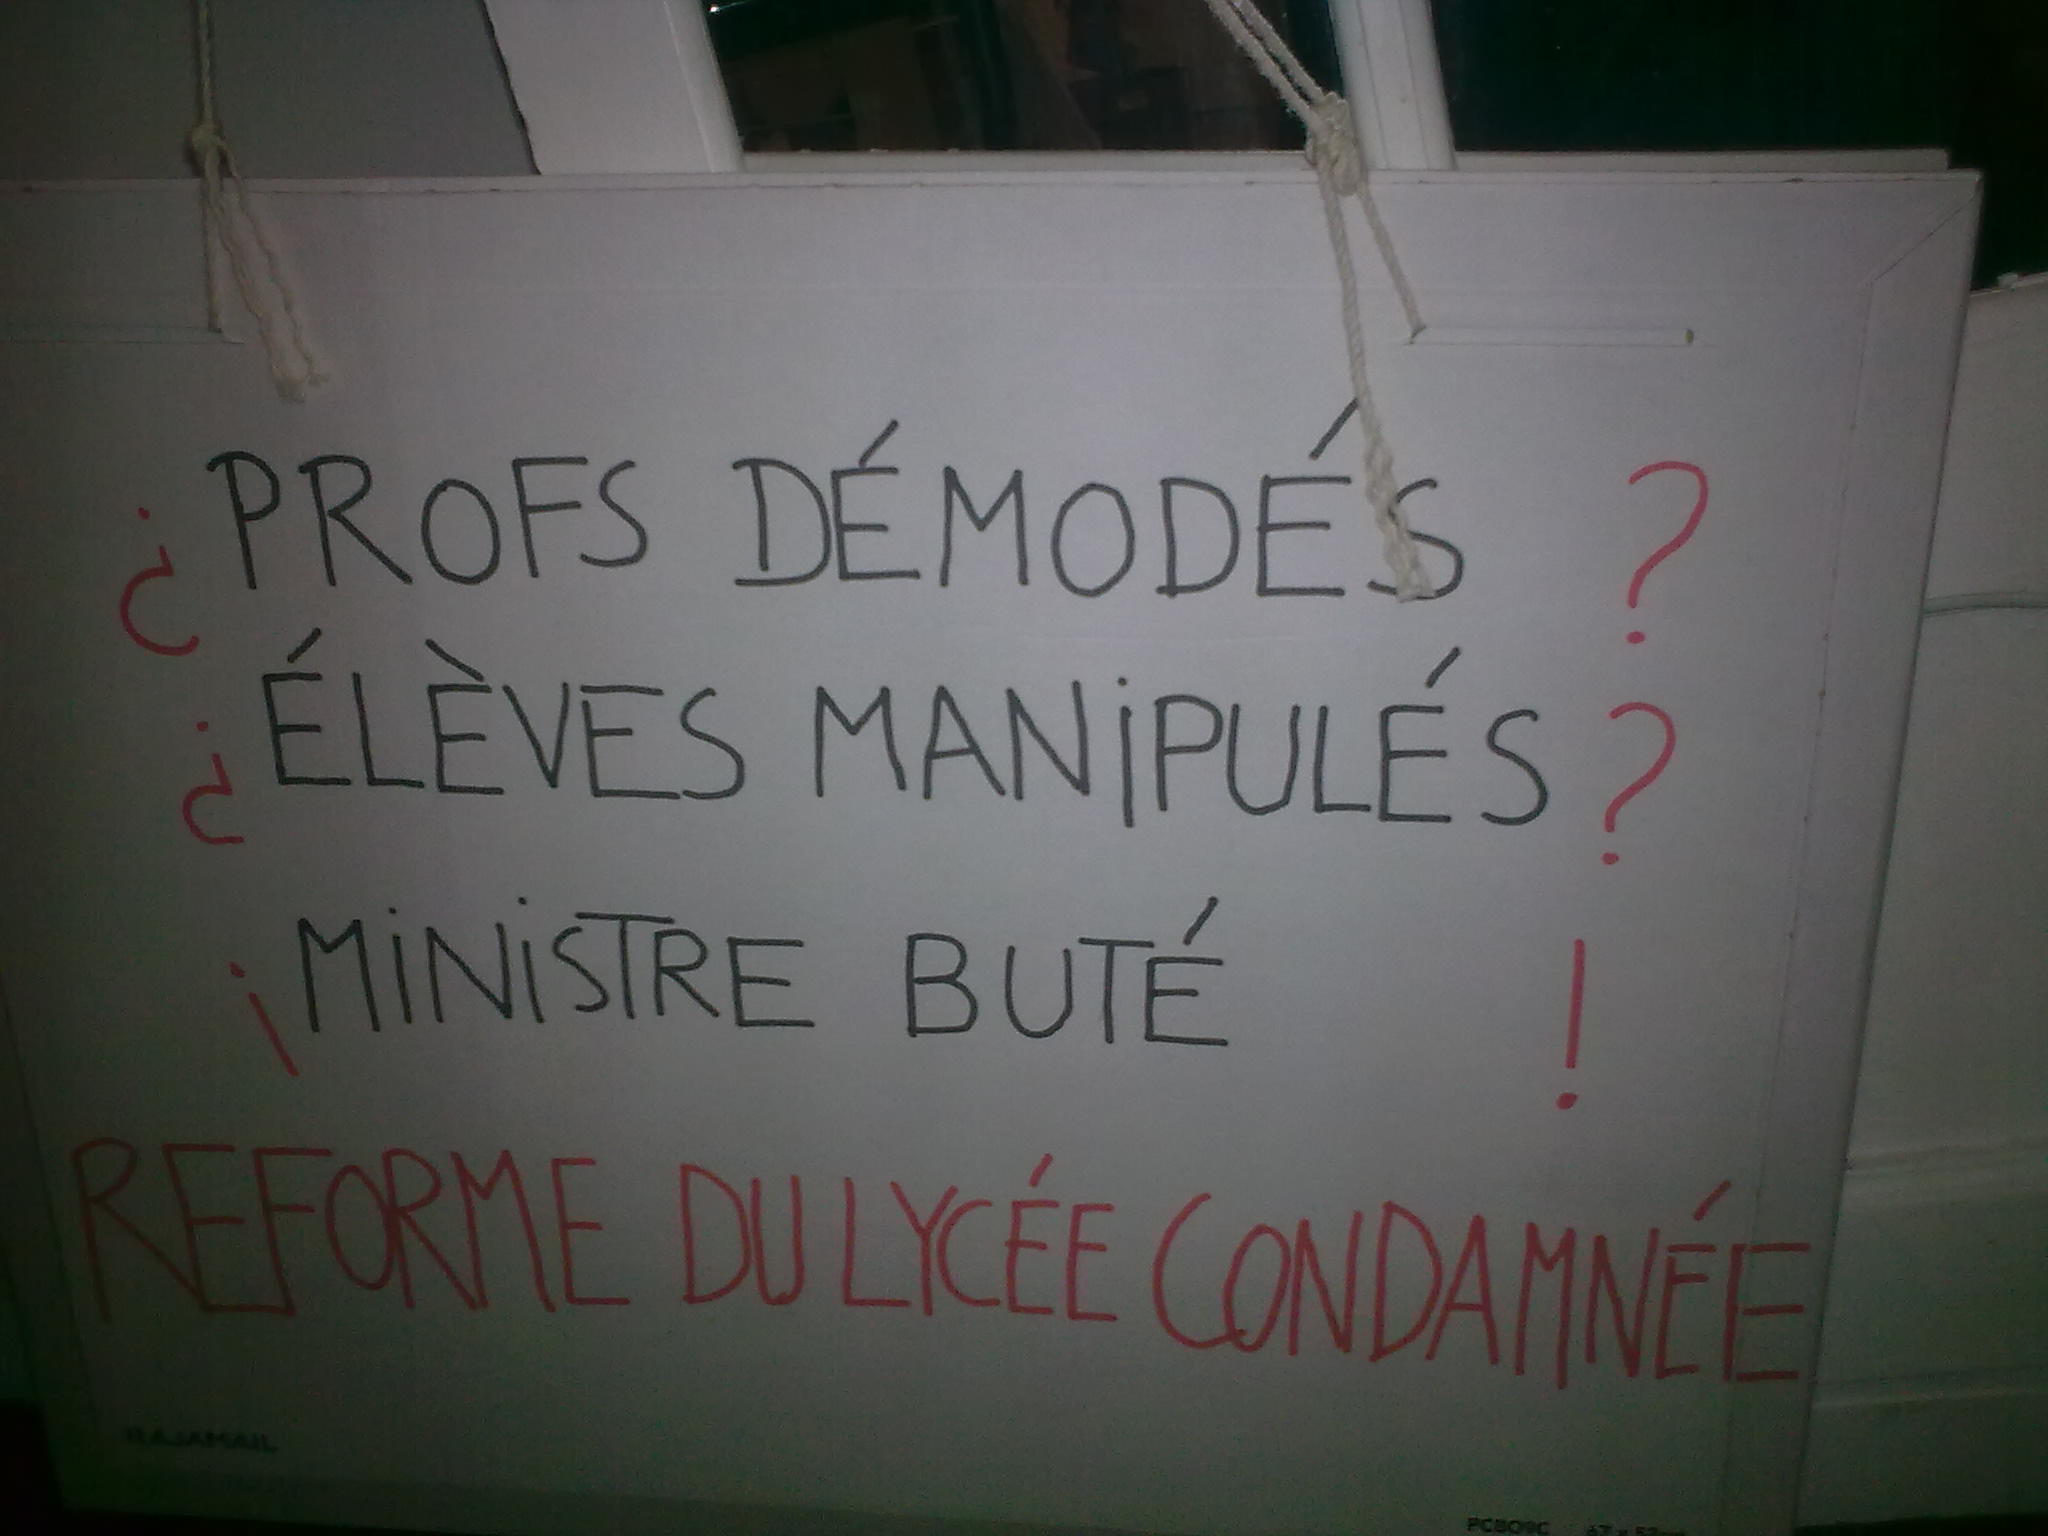 ¿ PROFS DÉMODÉS ?
¿ ÉLÈVES MANiPULÉS ?
¡ MiNiSTRE BUTÉ !
REFORME DU LYCÉE CONDAMNÉE
RAJAMAIL